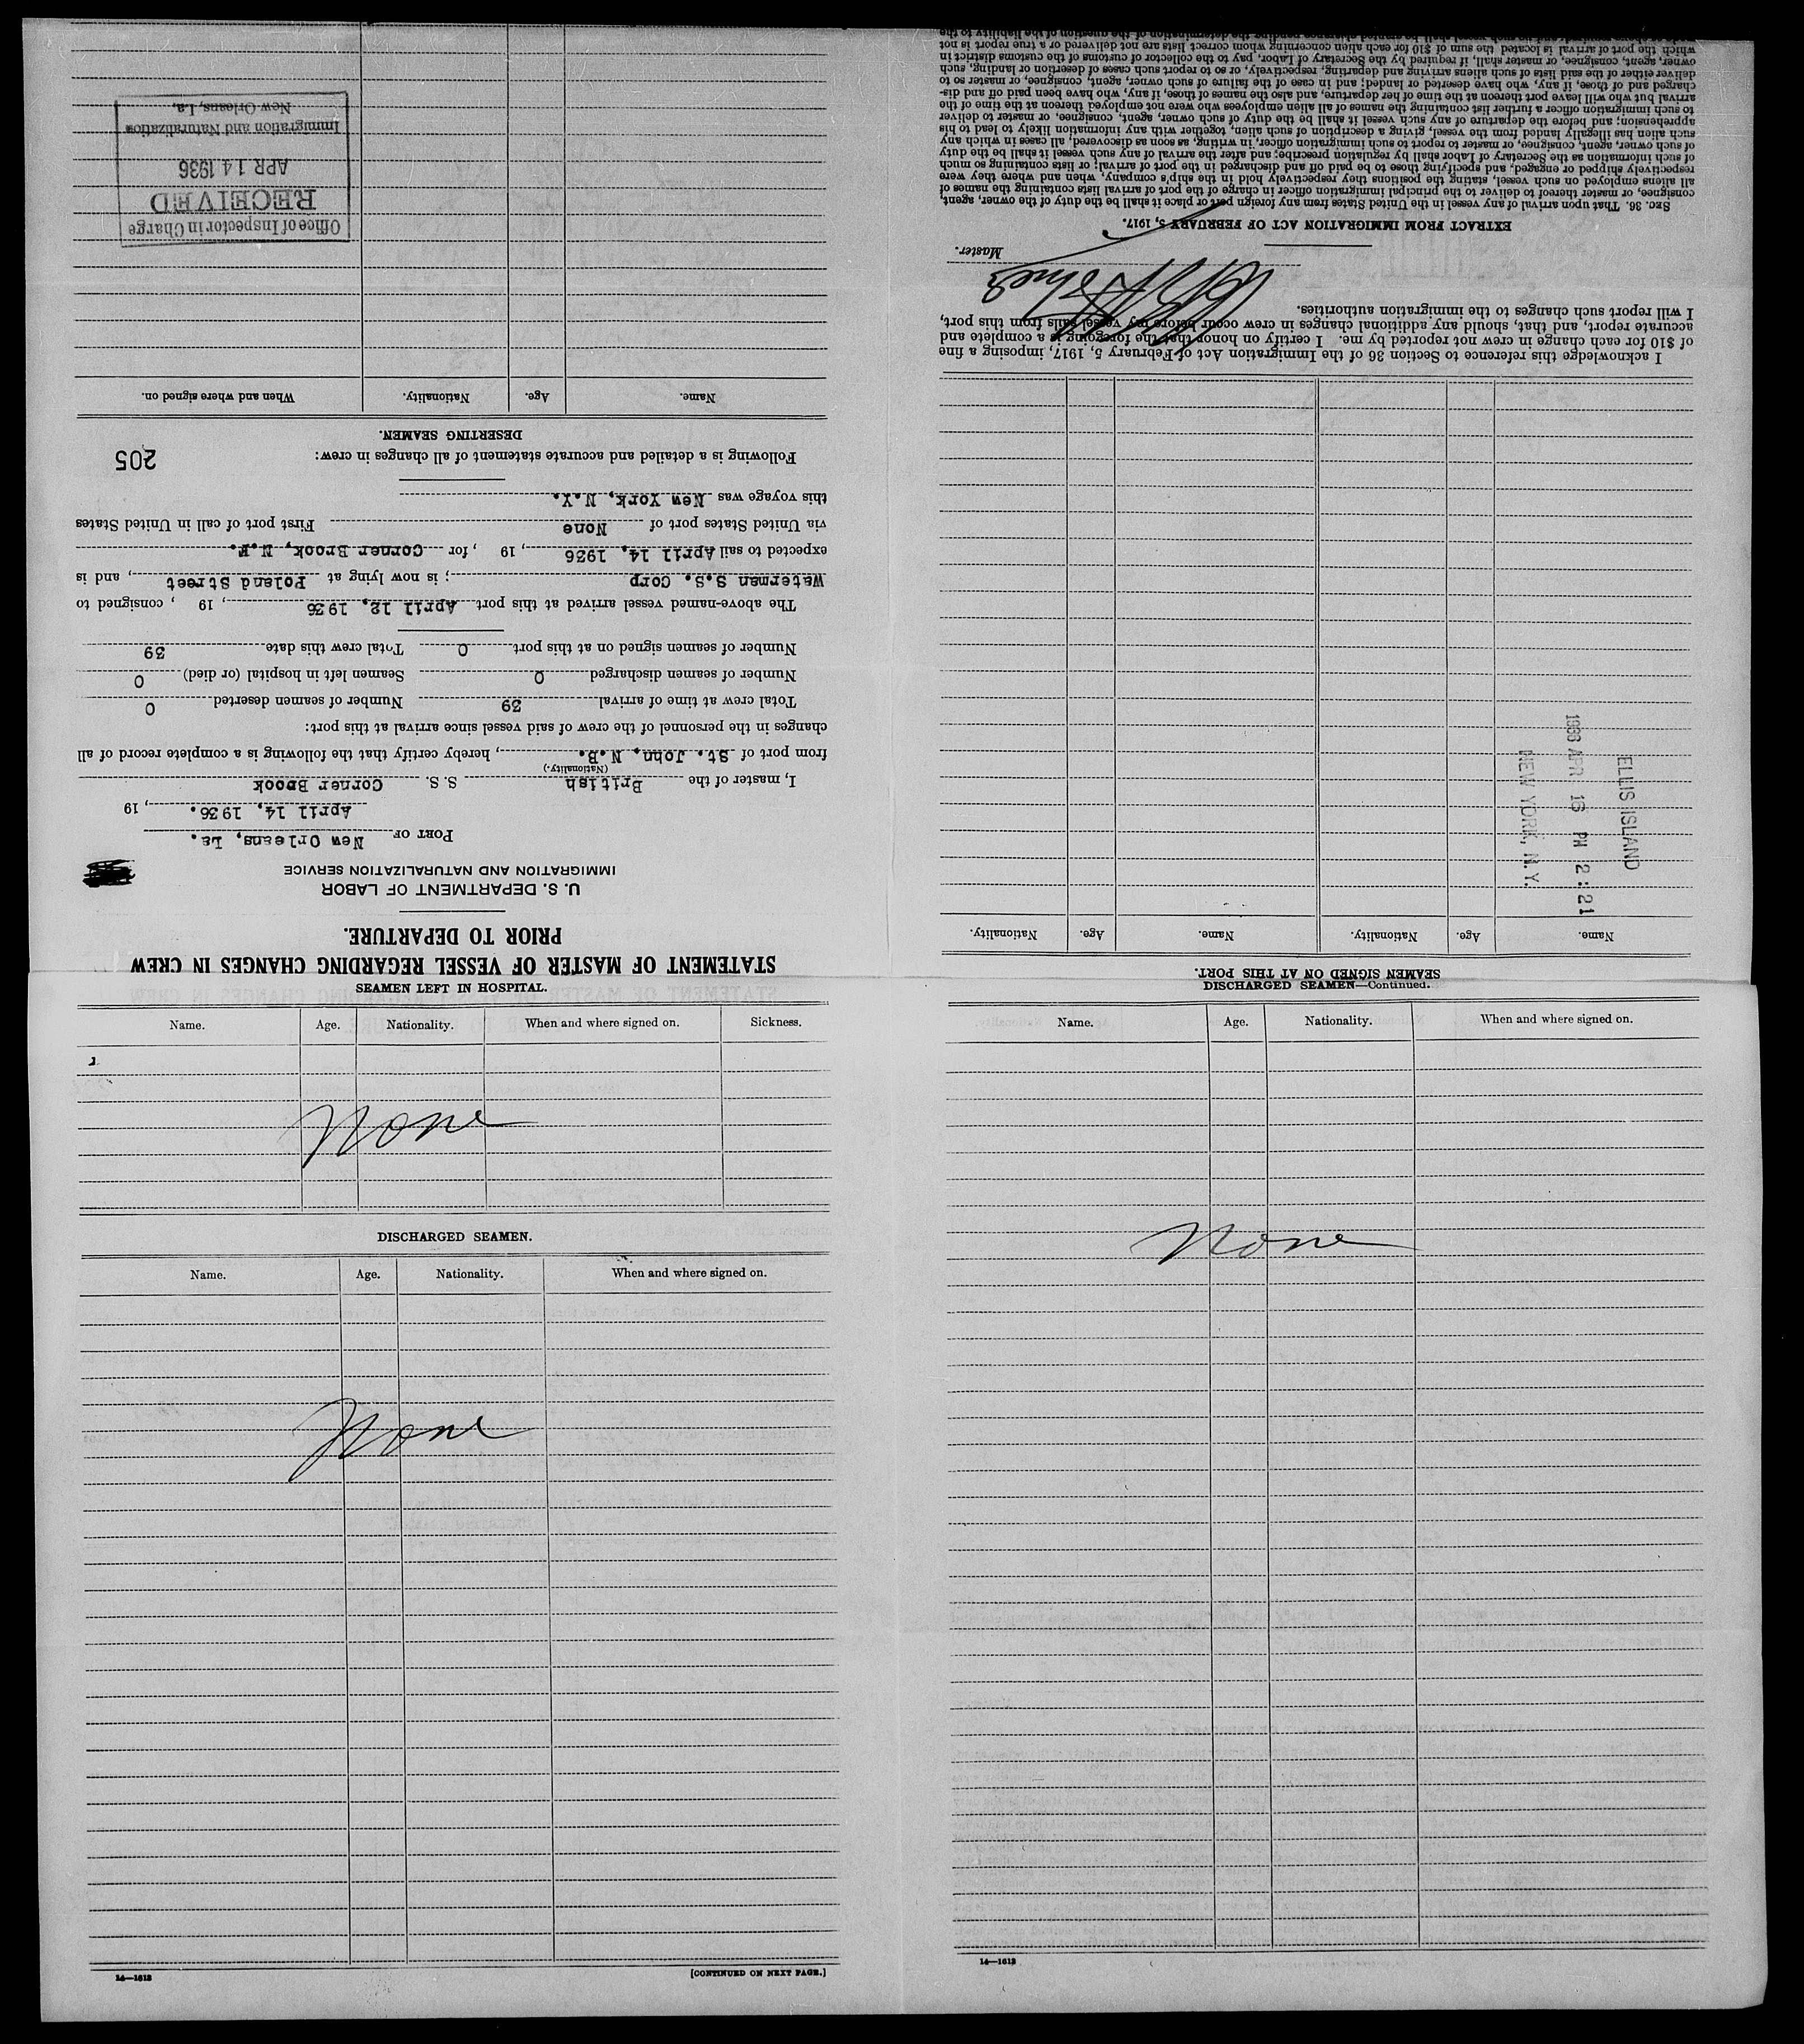 STATEMENT OF MASTER OF VESSEL REGARDING CHANGES IN CREW
PRIOR TO DEPARTURE.
U. S. DEPARTMENT OF LABOR
IMMIGRATION AND NATURALIZATION SERVICE
PORT OF New Orleans, La.
April 14, 1936. , 19
I, master of the British S. S. Corner Brook
(Nationality.)
from port of St. John, N.B. , hereby certify that the following is a complete record of all
changes in the personnel of the crew of said vessel since arrival at this port:
Total crew at time of arrival 39 Number of seamen deserted 0
Number of seamen discharged 0 Seamen left in hospital (or died) 0
Number of seamen signed on at this port 0 Total crew this date 39
The above-named vessel arrived at this port April 12, 1936 , 19 , consigned to
Waterman S.S. Corp ; is now lying at Poland Street , and is
expected to sail April 14, 1936 , 19 , for Corner Brook, N.F.
via United States port of None First port of call in United States
this voyage was New York, N.Y.
Following is a detailed and accurate statement of all changes in crew: 205
DESERTING SEAMEN.
Name. Age. Nationality. When and where signed on.
Office of Inspector in Charge
RECEIVED
APR 14 1936
Immigration and Naturalization
New Orleans, La.
SEAMEN LEFT IN HOSPITAL.
Name. Age. Nationality. When and where signed on. Sickness.
None
DISCHARGED SEAMEN.
Name. Age. Nationality. When and where signed on.
None
14—1613
[CONTINUED ON NEXT PAGE.]
DISCHARGED SEAMEN—Continued.
Name. Age. Nationality. When and where signed on.
None
14—1613
SEAMEN SIGNED ON AT THIS PORT.
Name. Age. Nationality. Name. Age. Nationality.
ELLIS ISLAND
1936 APR 16 PM 2:21
NEW YORK, N.Y.
I acknowledge this reference to Section 36 of the Immigration Act of February 5, 1917, imposing a fine
of $10 for each change in crew not reported by me. I certify on honor that the foregoing is a complete and
accurate report, and that, should any additional changes in crew occur before my vessel sails from this port,
I will report such changes to the immigration authorities.
Master.
EXTRACT FROM IMMIGRATION ACT OF FEBRUARY 5, 1917.
SEC. 36. That upon arrival of any vessel in the United States from any foreign port or place it shall be the duty of the owner, agent,
consignee, or master thereof to deliver to the principal immigration officer in charge of the port of arrival lists containing the names of
all aliens employed on such vessel, stating the positions they respectively hold in the ship's company, when and where they were
respectively shipped or engaged, and specifying those to be paid off and discharged in the port of arrival; or lists containing so much
of such information as the Secretary of Labor shall by regulation prescribe; and after the arrival of any such vessel it shall be the duty
of such owner, agent, consignee, or master to report to such immigration officer, in writing, as soon as discovered, all cases in which any
such alien has illegally landed from the vessel, giving a description of such alien, together with any information likely to lead to his
apprehension; and before the departure of any such vessel it shall be the duty of such owner, agent, consignee, or master to deliver
to such immigration officer a further list containing the names of all alien employees who were not employed thereon at the time of the
arrival but who will leave port thereon at the time of her departure, and also the names of those, if any, who have been paid off and dis-
charged and of those, if any, who have deserted or landed; and in case of the failure of such owner, agent, consignee, or master so to
deliver either of the said lists of such aliens arriving and departing, respectively, or so to report such cases of desertion or landing, such
owner, agent, consignee, or master shall, if required by the Secretary of Labor, pay to the collector of customs of the customs district in
which the port of arrival is located the sum of $10 for each alien concerning whom correct lists are not delivered or a true report is not